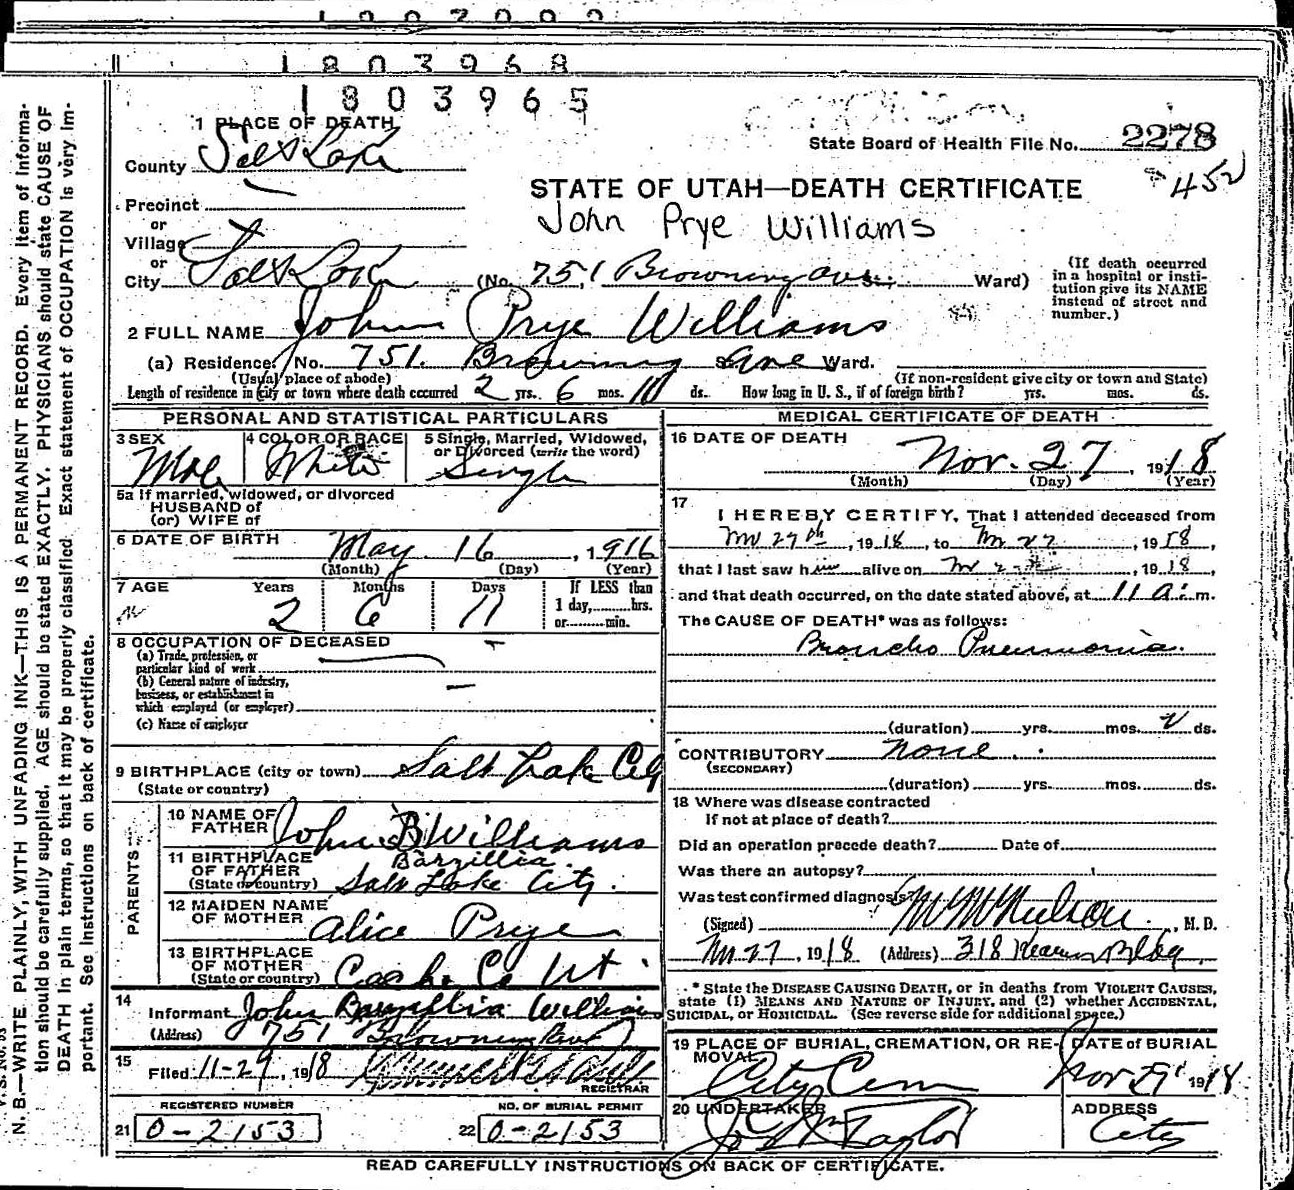 1803968
1803965
1 PLACE OF DEATH
County Salt Lake
State Board of Health File No. 2278
452
STATE OF UTAH—DEATH CERTIFICATE
John Prye Williams
Precinct
or
Village
or
City Salt Lake (No. 751 Browning ave St.; Ward)
(If death occurred in a hospital or institution give its NAME instead of street and number.)
2 FULL NAME John Prye Williams
(a) Residence. No. 751. Browning Ave Ward.
(Usual place of abode) (If non-resident give city or town and State)
Length of residence in city or town where death occurred 2 yrs. 6 mos. 11 ds. How long in U. S., if of foreign birth? yrs. mos. ds.
PERSONAL AND STATISTICAL PARTICULARS
3 SEX Male
4 COLOR OR RACE White
5 Single, Married, Widowed, or Divorced (write the word) Single
5a If married, widowed, or divorced
HUSBAND of
(or) WIFE of
6 DATE OF BIRTH May 16, 1916
(Month) (Day) (Year)
7 AGE Years 2 Months 6 Days 11
If LESS than
1 day, hrs.
or min.
8 OCCUPATION OF DECEASED
(a) Trade, profession, or
particular kind of work
(b) General nature of industry,
business, or establishment in
which employed (or employer)
(c) Name of employer
9 BIRTHPLACE (city or town) Salt Lake City
(State or country)
PARENTS
10 NAME OF FATHER John B Williams
Barzillia
11 BIRTHPLACE OF FATHER (State or country) Salt Lake City.
12 MAIDEN NAME OF MOTHER Alice Prye
13 BIRTHPLACE OF MOTHER (State or country) Cache Co Ut.
14
Informant John Barzillia Williams
(Address) 751 Browning Ave
15
Filed 11-29, 1918
REGISTRAR
REGISTERED NUMBER
21 0-2153
NO. OF BURIAL PERMIT
22 0-2153
MEDICAL CERTIFICATE OF DEATH
16 DATE OF DEATH
Nov. 27, 1918
(Month) (Day) (Year)
17
I HEREBY CERTIFY, That I attended deceased from
Nov 27th, 1918, to Nov 27, 1918,
that I last saw him alive on Nov, 1918,
and that death occurred, on the date stated above, at 11 a. m.
The CAUSE OF DEATH* was as follows:
Broncho Pneumonia.
(duration) yrs. mos. 2 ds.
CONTRIBUTORY None
(SECONDARY)
(duration) yrs. mos. ds.
18 Where was disease contracted
If not at place of death?
Did an operation precede death? Date of
Was there an autopsy?
Was test confirmed diagnosis?
(Signed), M. D.
Nov 27, 1918 (Address) 318 Kearns Bldg
* State the DISEASE CAUSING DEATH, or in deaths from VIOLENT CAUSES,
state (1) MEANS AND NATURE OF INJURY, and (2) whether ACCIDENTAL,
SUICIDAL, or HOMICIDAL. (See reverse side for additional space.)
19 PLACE OF BURIAL, CREMATION, OR REMOVAL City Cem
DATE OF BURIAL Nov 29 1918
20 UNDERTAKER Taylor
ADDRESS City
READ CAREFULLY INSTRUCTIONS ON BACK OF CERTIFICATE.
N. B.—WRITE PLAINLY, WITH UNFADING INK—THIS IS A PERMANENT RECORD. Every item of informa-
tion should be carefully supplied. AGE should be stated EXACTLY. PHYSICIANS should state CAUSE OF
DEATH in plain terms, so that it may be properly classified. Exact statement of OCCUPATION is very im-
portant. See Instructions on back of certificate.